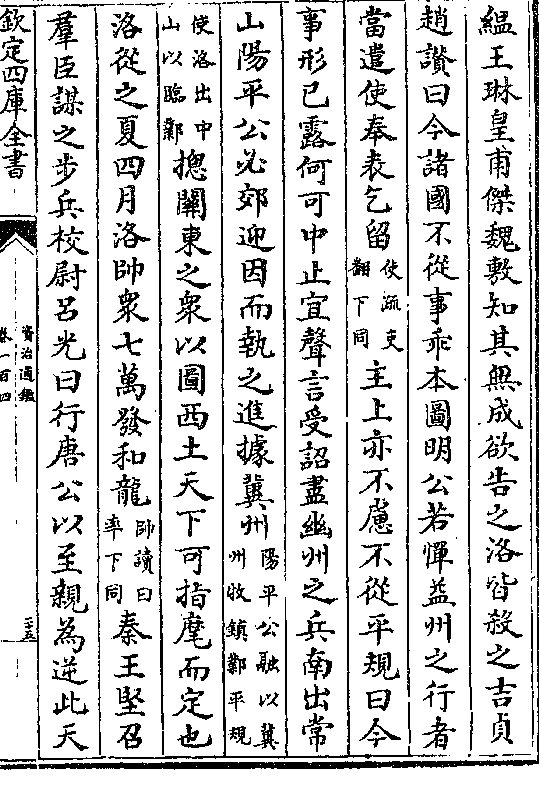 緼王琳皇甫傑魏敷知其無成欲告之洛皆殺之吉貞
趙讃曰今諸國不從事乖本圖明公若憚益州之行者
當遣使奉表乞留使疏吏翻下同主上亦不慮不從平規曰今
事形已露何可中止宜聲言受詔盡幽州之兵南出常
山陽平公必郊迎因而執之進據冀州陽平公融以冀州牧鎮鄴平規
使洛出中山以臨鄴揔闗東之衆以圖西土天下可指麾而定也
洛從之夏四月洛帥衆七萬發和龍帥讀曰率下同秦王堅召
羣臣謀之步兵校尉呂光曰行唐公以至親為逆此天
欽定四庫全書
資治通鑑
卷一百四
二十五